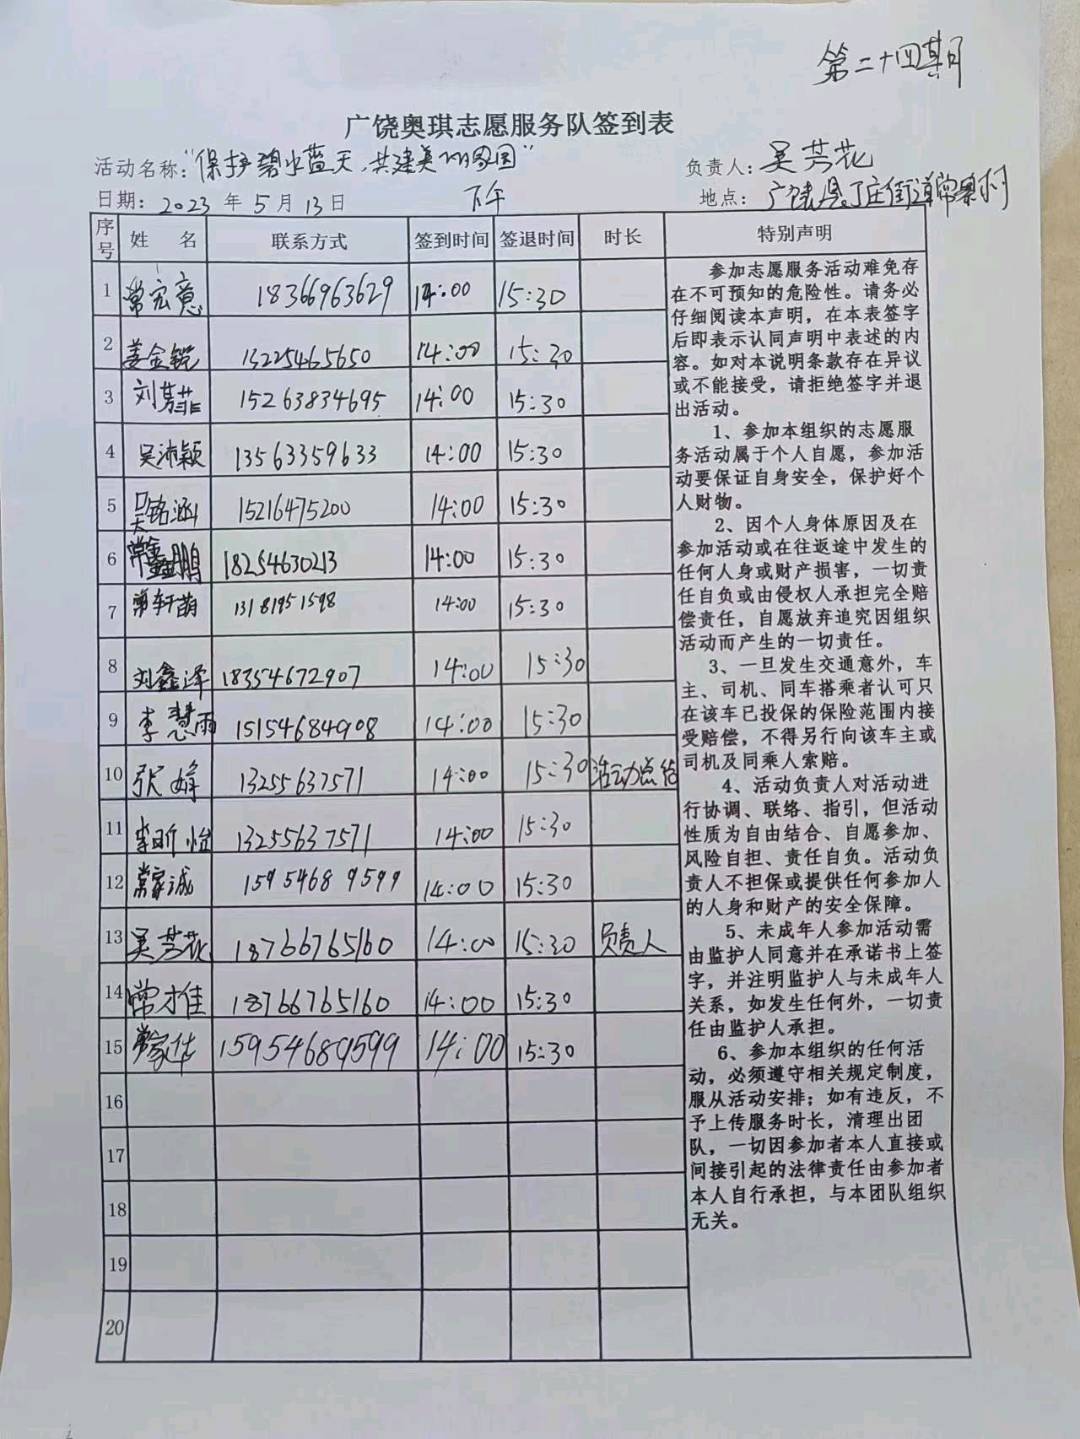 第二十四期
广饶奥琪志愿服务队签到表
活动名称："保护碧水蓝天，共建美丽家园" 负责人：吴芳花
日期：2023年5月13日 下午 地点：广饶县丁庄街道常寨村
序号 姓名 联系方式 签到时间 签退时间 时长 特别声明
1 常宏意 18366963629 14:00 15:30
2 姜金锐 13225465650 14:00 15:30
3 刘 15263834695 14:00 15:30
4 吴沛颖 13563359633 14:00 15:30
5 吴铭涵 15216475200 14:00 15:30
6 常鑫鹏 18254630213 14:00 15:30
7 常轩萌 13181951598 14:00 15:30
8 刘鑫泽 18354672907 14:00 15:30
9 李慧雨 15154684908 14:00 15:30
10 张峰 13255637571 14:00 15:30 活动总结
11 李昕怡 13255637571 14:00 15:30
12 常家诚 15954689599 14:00 15:30
13 吴芳花 18766765160 14:00 15:30 负责人
14 常才佳 18766765160 14:00 15:30
15 常家华 15954689599 14:00 15:30
16
17
18
19
20
参加志愿服务活动难免存
在不可预知的危险性。请务必
仔细阅读本声明，在本表签字
后即表示认同声明中表述的内
容。如对本说明条款存在异议
或不能接受，请拒绝签字并退
出活动。
1、参加本组织的志愿服
务活动属于个人自愿，参加活
动要保证自身安全，保护好个
人财物。
2、因个人身体原因及在
参加活动或在往返途中发生的
任何人身或财产损害，一切责
任自负或由侵权人承担完全赔
偿责任，自愿放弃追究因组织
活动而产生的一切责任。
3、一旦发生交通意外，车
主、司机、同车搭乘者认可只
在该车已投保的保险范围内接
受赔偿，不得另行向该车主或
司机及同乘人索赔。
4、活动负责人对活动进
行协调、联络、指引，但活动
性质为自由结合、自愿参加、
风险自担、责任自负。活动负
责人不担保或提供任何参加人
的人身和财产的安全保障。
5、未成年人参加活动需
由监护人同意并在承诺书上签
字，并注明监护人与未成年人
关系，如发生任何外，一切责
任由监护人承担。
6、参加本组织的任何活
动，必须遵守相关规定制度，
服从活动安排；如有违反，不
予上传服务时长，清理出团
队，一切因参加者本人直接或
间接引起的法律责任由参加者
本人自行承担，与本团队组织
无关。